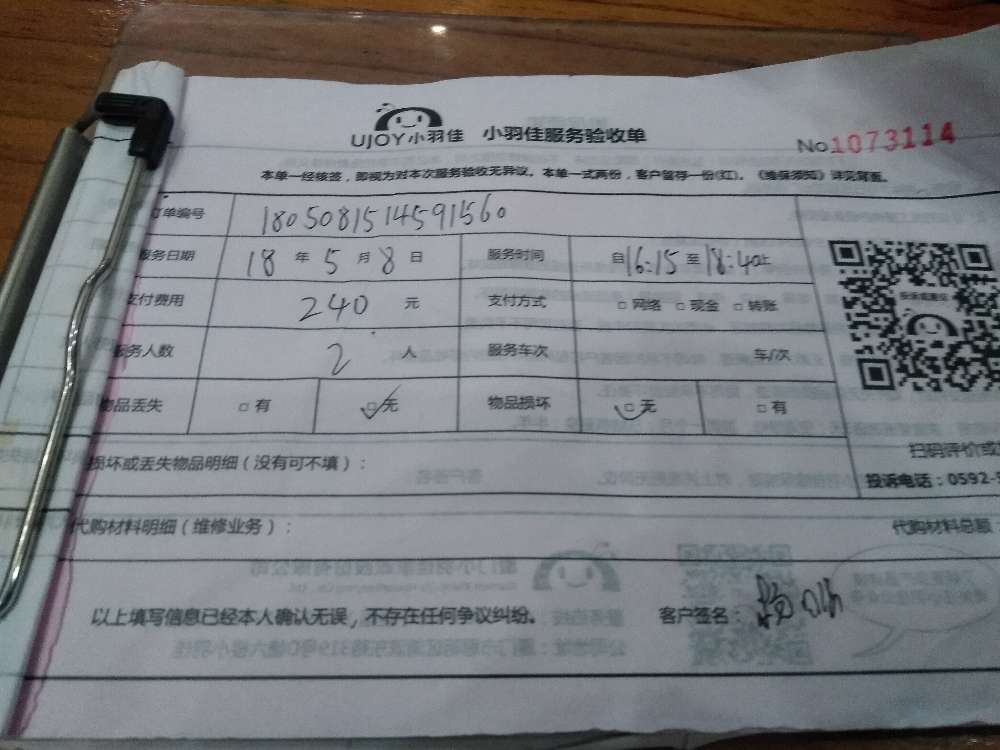 UJOY小羽佳 小羽佳服务验收单 No1073114
本单一经核签，即视为对本次服务验收无异议。本单一式两份，客户留存一份(红)。《维保须知》详见背面。
订单编号 1805081514591560
服务日期 18 年 5 月 8 日 服务时间 自16:15至18:40止
支付费用 240 元 支付方式 □ 网络 □ 现金 □ 转账
服务人数 2 人 服务车次 车/次
物品丢失 □ 有 ☑ 无 物品损坏 ☑ 无 □ 有
损坏或丢失物品明细（没有可不填）：
扫码评价或
投诉电话：0592-
代购材料明细（维修业务）： 代购材料总额
以上填写信息已经本人确认无误，不存在任何争议纠纷。 客户签名：